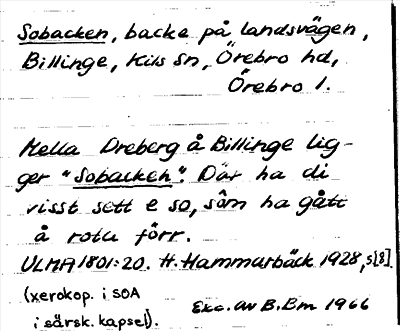 Sobacken, backe på landsvägen,
Billinge, Kils sn, Örebro hd,
Örebro l.
Mella Dreberg å Billinge lig-
ger "Sobacken". Där ha di
visst sett e so, sôm ha gått
å rota förr.
ULMA 1801:20. H. Hammarbäck 1928, s[8].
(xerokop. i SOA
i särsk. kapsel).
Exc. av B. Em 1966